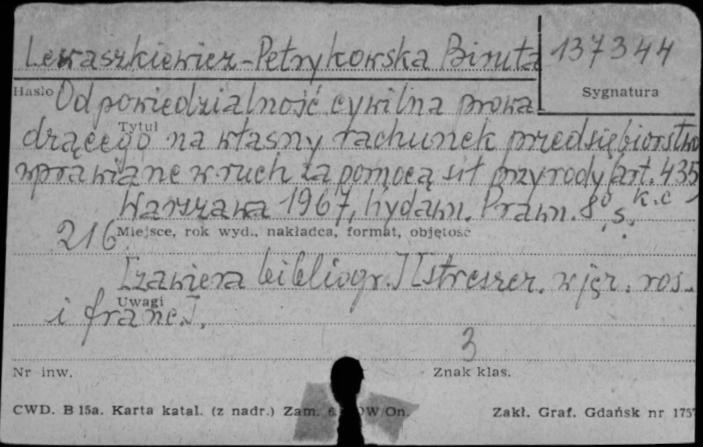 Lewaszkiewicz-Petrykowska Biruta 137344
Hasło Sygnatura
Odpowiedzialność cywilna prowa
Tytuł
dzącego na własny rachunek przedsiębiorstwo
wprawiane w ruch za pomocą sił przyrody (art. 435
k.c
Warszawa 1967, Wydawn. Prawn. 8° s.
216 Miejsce, rok wyd., nakładca, format, objętość
[zawiera bibliogr.] [streszcz. w jęz. ros.
Uwagi
i franc.].
3
Nr inw. Znak klas.
CWD. B 15a. Karta katal. (z nadr.) Zam. OW/On. Zakł. Graf. Gdańsk nr 175